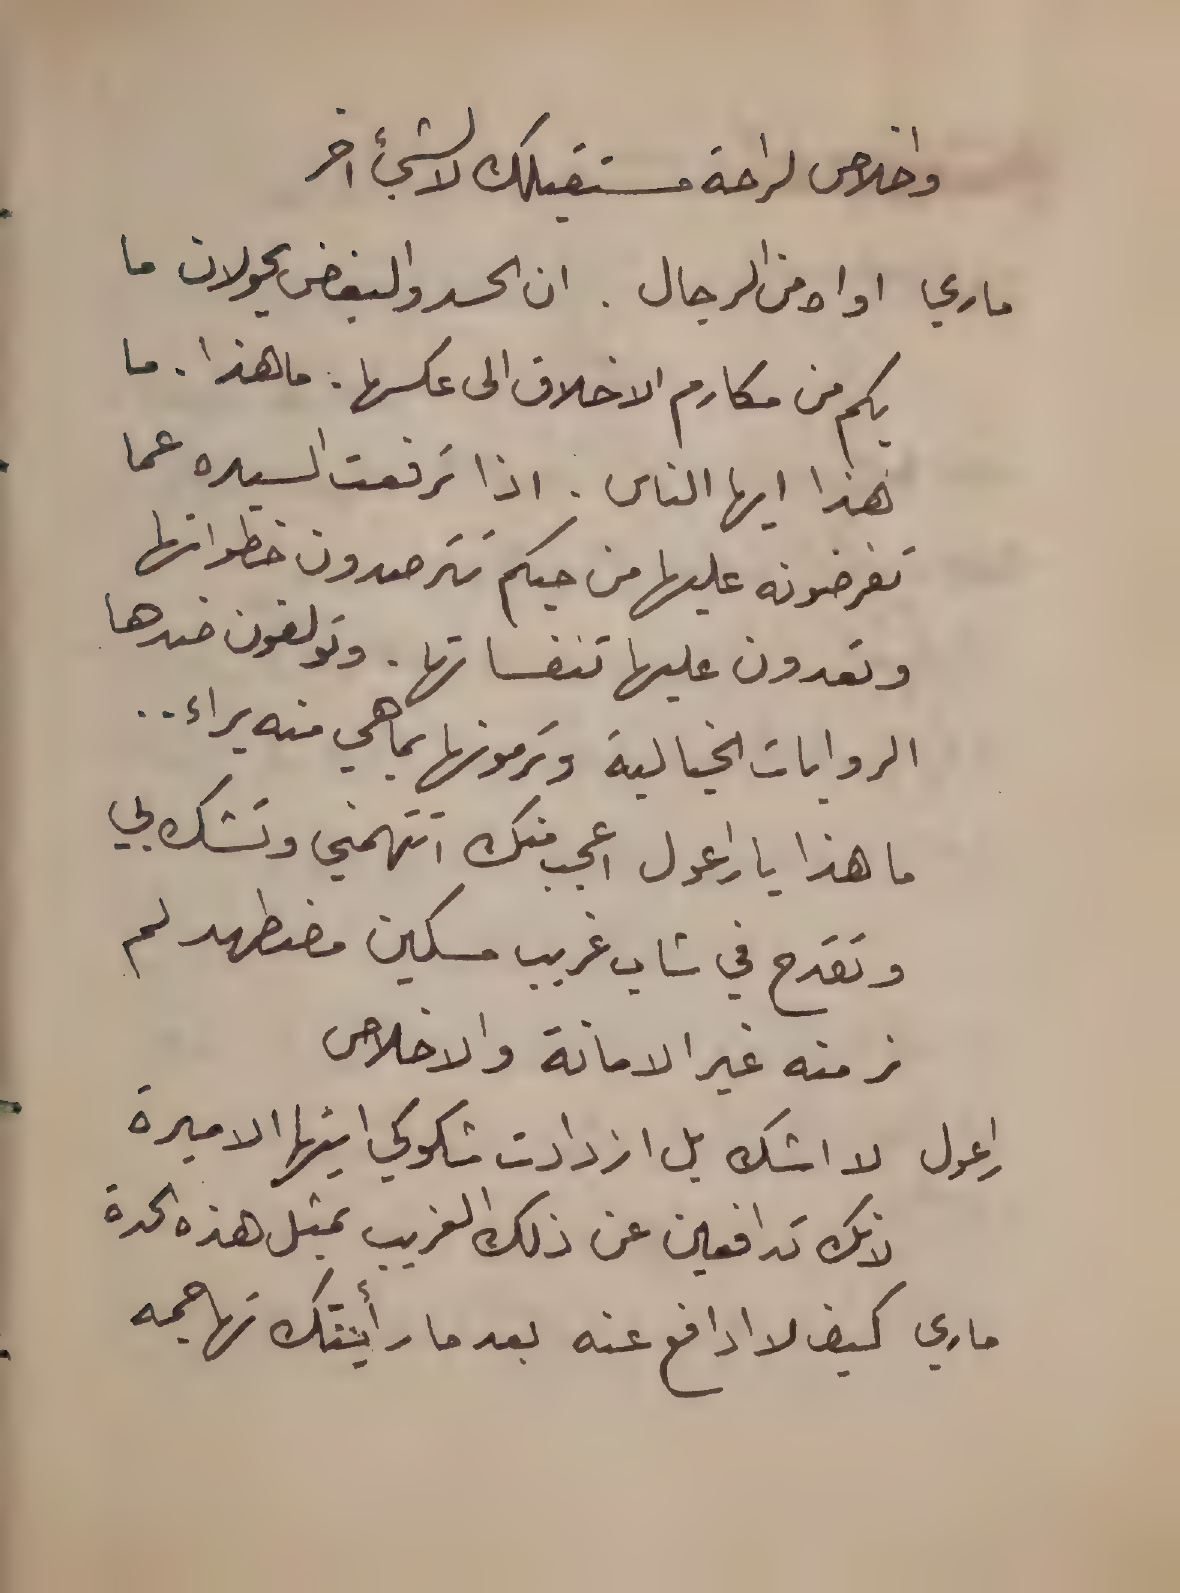 واخلاص لراحة مستقبلك لا لشيئ اخر
ماري اواه من الرجال . ان الحسد والبغض يحولان ما
بكم من مكارم الاخلاق الى عكسها . ما هذا . ما
هذا ايها الناس . اذا ترفعت السيده عما
تفرضونه عليها من حبكم تترصدون خطواتها
وتعدون عليها تنفساتها . وتولفون ضدها
الروايات الخيالية وترمونها بما هي منه براء ..
ما هذا يا راعول اعجب منك اتتهمني وتشك بي
وتقدح في شاب غريب مسكين مضطهد لم
نر منه غير الامانة والاخلاص
راعول لا اشك بل ازدادت شكوكي ايتها الاميرة
لانك تدافعين عن ذلك الغريب بمثل هذه الحدة
ماري كيف لا ادافع عنه بعد ما رأيتك تهاجمه